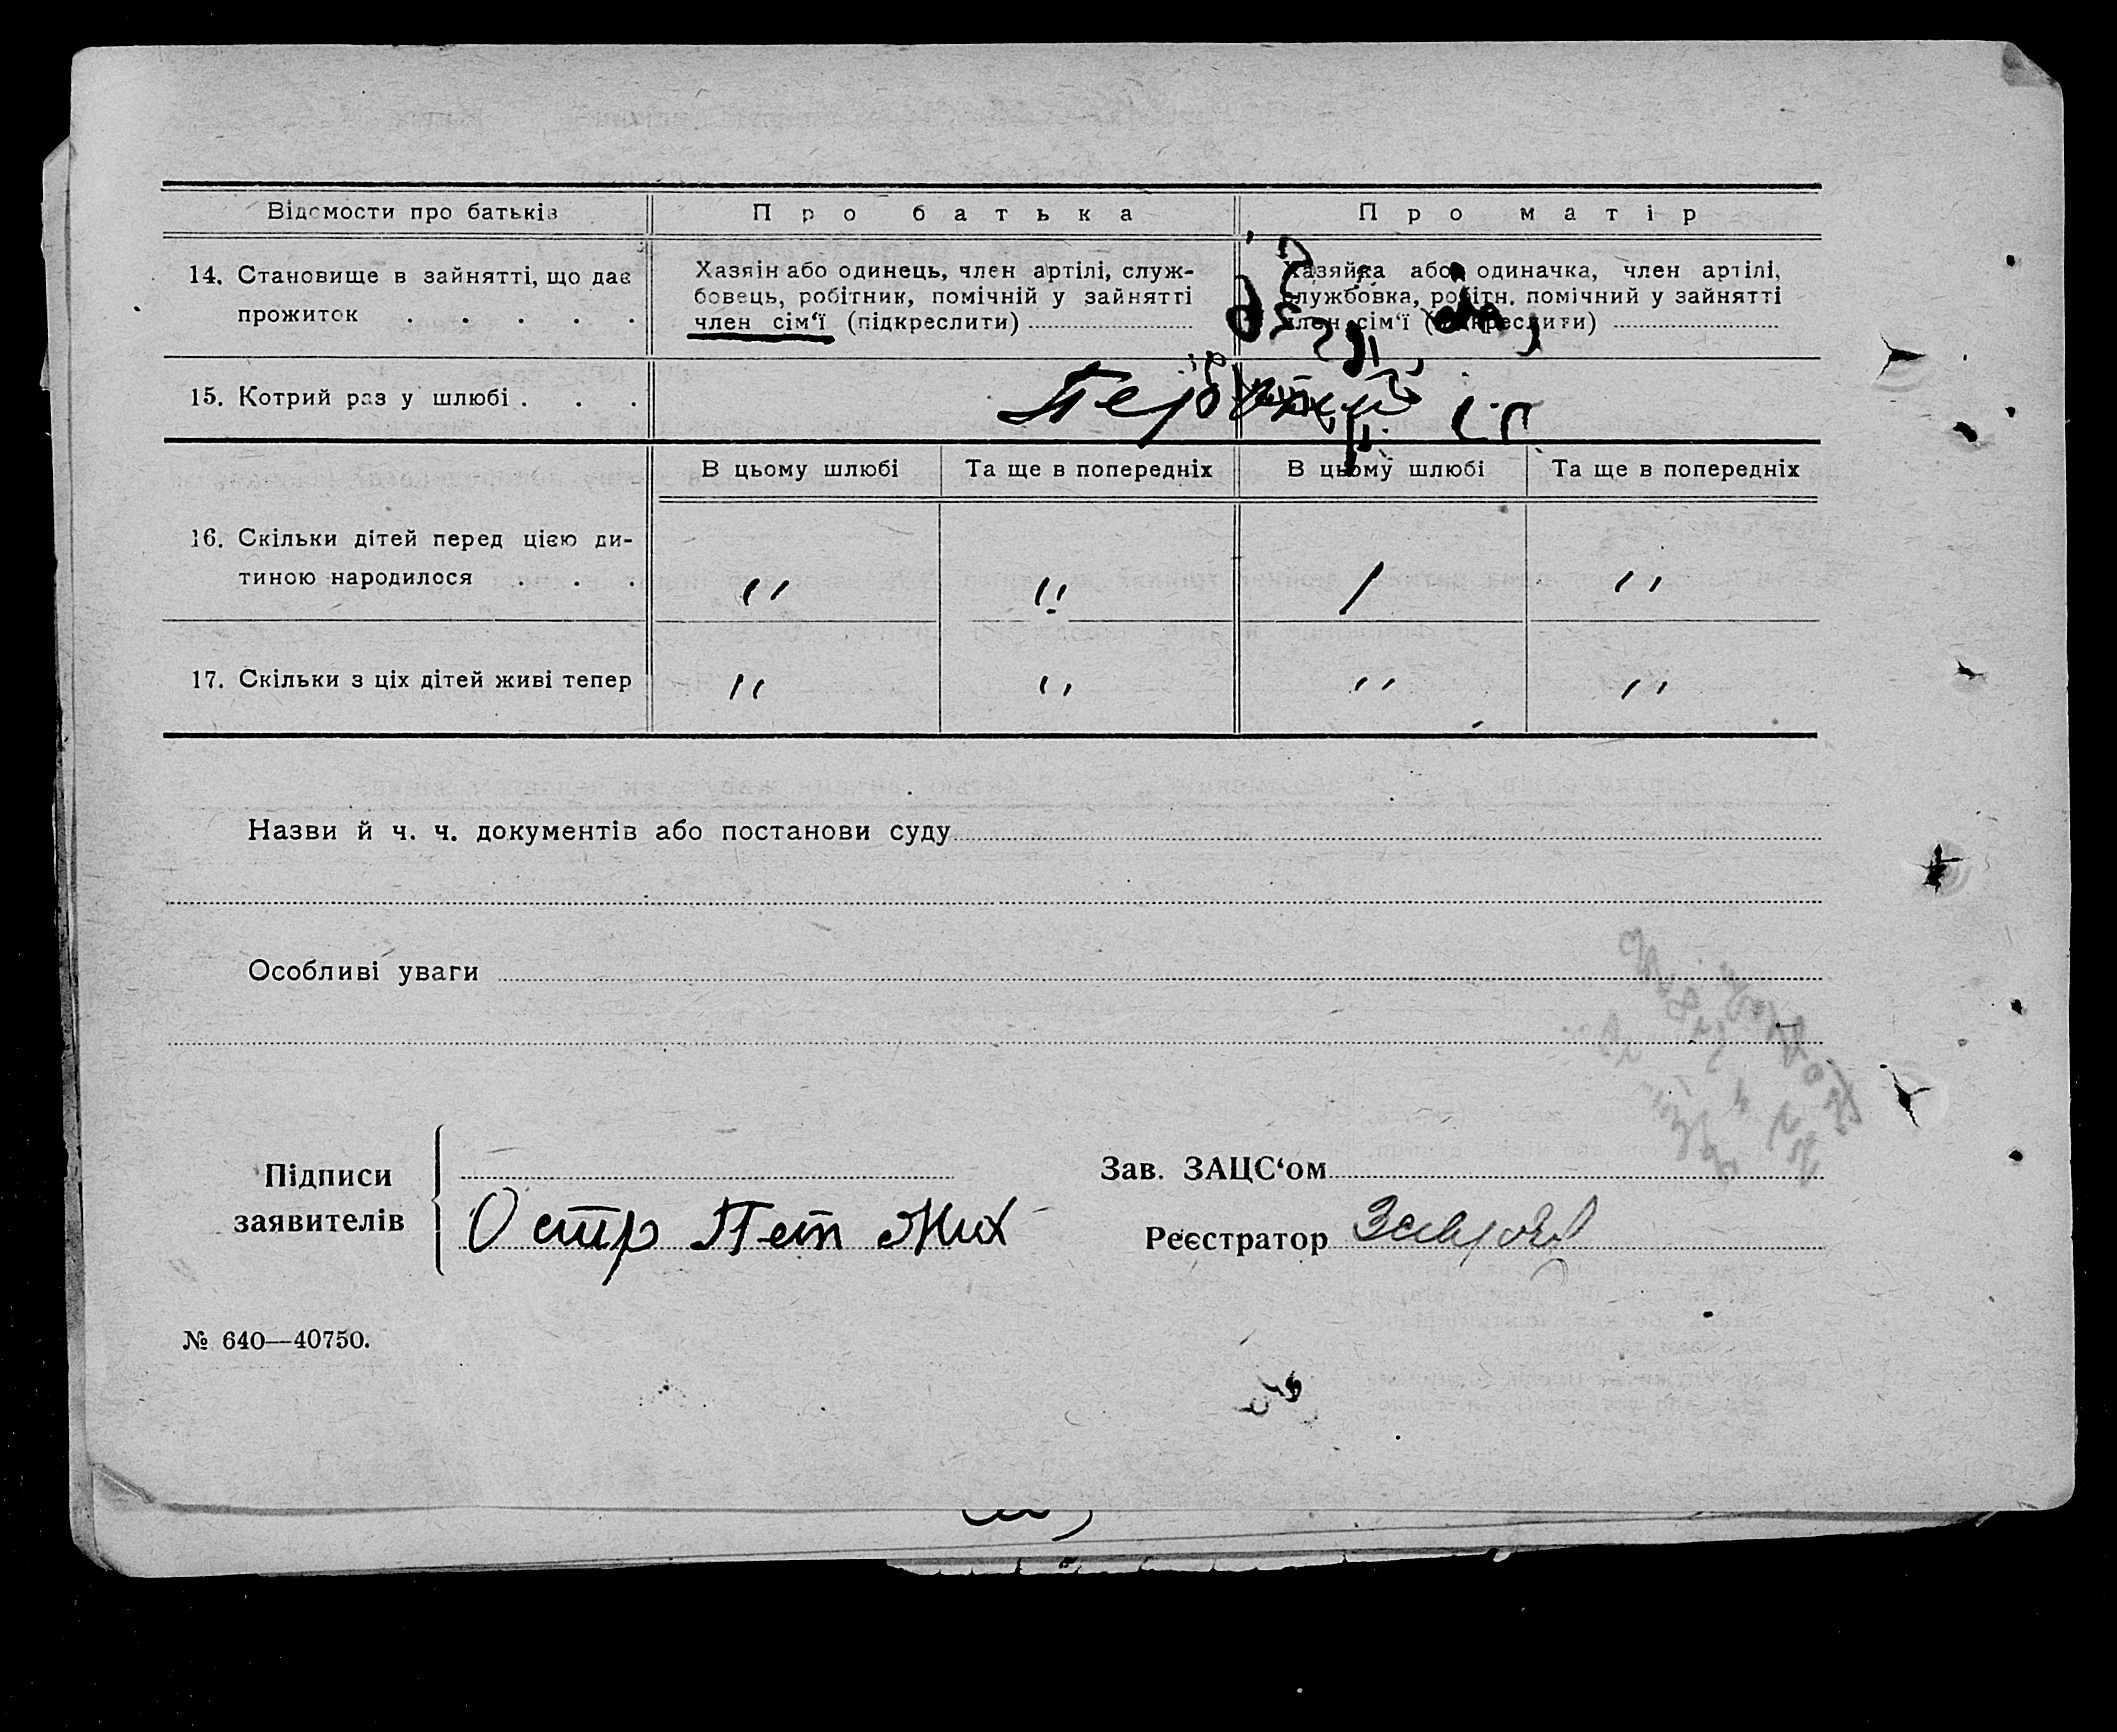 Відомости про батьків
Про батька
Про матір
14. Становище в зайнятті, що дає
прожиток . . . . .
Хазяїн або одинець, член артілі, служ-
бовець, робітник, помічній у зайнятті
член сім‘ї (підкреслити)
Хазяйка або одиначка, член артілі,
службовка, робітн. помічний у зайнятті
член сім‘ї (підкреслити)
15. Котрий раз у шлюбі . . .
В цьому шлюбі
Та ще в попередніх
В цьому шлюбі
Та ще в попередніх
16. Скільки дітей перед цією ди-
тиною народилося . . .
" " / "
17. Скільки з ціх дітей живі тепер
" " " "
Назви й ч. ч. документів або постанови суду
Особливі уваги
Підписи
заявителів
Остр Пет Мих
Зав. ЗАЦС‘ом
Реєстратор
№ 640—40750.